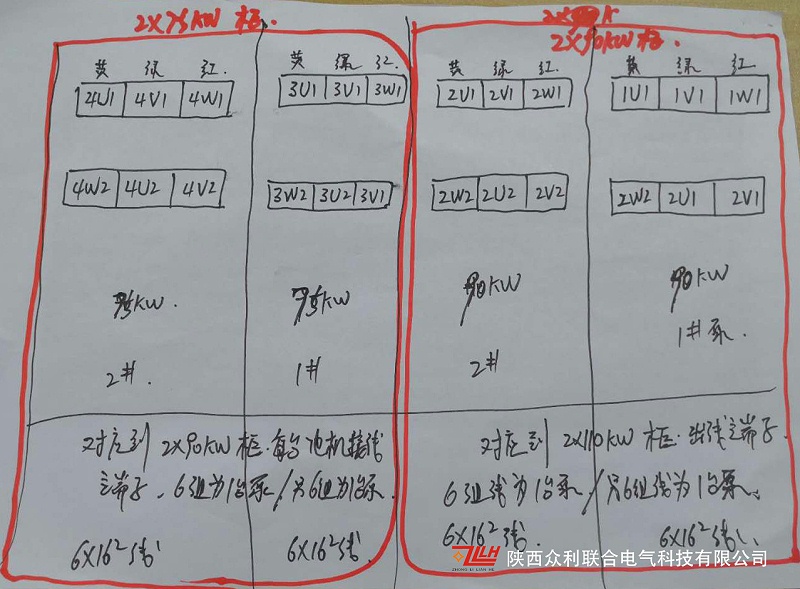 2X75KW柜.
2X90KW柜.
黄 绿 红.
4U1 4V1 4W1
4W2 4U2 4V2
75KW.
2#.
黄 绿 红.
3U1 3V1 3W1
3W2 3U2 3V1
75KW
1#
黄 绿 红.
2U1 2V1 2W1
2W2 2U2 2V2
90KW
2#
黄 绿 红
1U1 1V1 1W1
2W2 2U1 2V1
90KW
1#泵.
对应到 2X90KW柜. 每台 电机接线
端子, 6组为1台泵/另6组为1台泵.
6X16²线. 6X16²线.
对应到 2X110KW柜. 出线端子
6组线为1台泵/另6组线为1台泵、
6X16²线. 6X16²线、
ZLLH
ZHONG LI LIAN HE
陕西众利联合电气科技有限公司